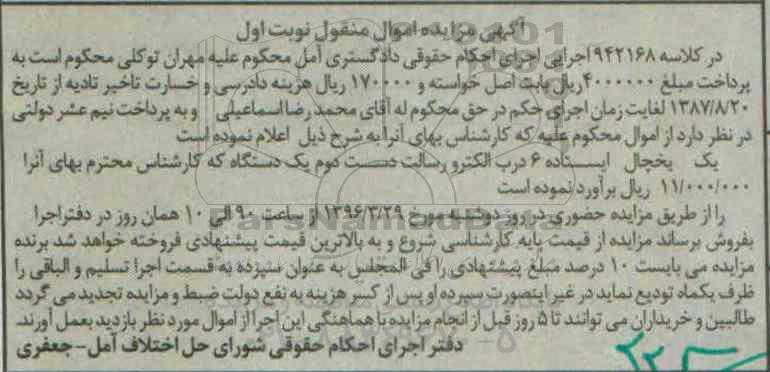 آگهی مزایده اموال منقول نوبت اول
در کلاسه ۹۴۲۱۶۸ اجرایی اجرای احکام حقوقی دادگستری آمل محکوم علیه مهران توکلی محکوم است به
پرداخت مبلغ ۴۰۰۰۰۰۰ ریال بابت اصل خواسته و ۱۷۰۰۰۰ ریال هزینه دادرسی و خسارت تاخیر تادیه از تاریخ
۱۳۸۷/۸/۲۰ لغایت زمان اجرای حکم در حق محکوم له آقای محمد رضا اسماعیلی و به پرداخت نیم عشر دولتی
در نظر دارد از اموال محکوم علیه که کارشناس بهای آنرا به شرح ذیل اعلام نموده است
یک یخچال ایستاده ۶ درب الکترو رسالت دست دوم یک دستگاه که کارشناس محترم بهای آنرا
۱۱/۰۰۰/۰۰۰ ریال برآورد نموده است
را از طریق مزایده حضوری در روز دوشنبه مورخ ۱۳۹۶/۳/۲۹ از ساعت ۹۰ الی ۱۰ همان روز در دفتر اجرا
بفروش برساند مزایده از قیمت پایه کارشناسی شروع و به بالاترین قیمت پیشنهادی فروخته خواهد شد برنده
مزایده می بایست ۱۰ درصد مبلغ پیشنهادی را فی المجلس به عنوان سپرده به قسمت اجرا تسلیم و الباقی را
ظرف یکماه تودیع نماید در غیر اینصورت سپرده او پس از کسر هزینه به نفع دولت ضبط و مزایده تجدید می گردد
طالبین و خریداران می توانند تا ۵ روز قبل از انجام مزایده با هماهنگی این اجرا از اموال مورد نظر بازدید بعمل آورند.
دفتر اجرای احکام حقوقی شورای حل اختلاف آمل- جعفری
ParsNamadData